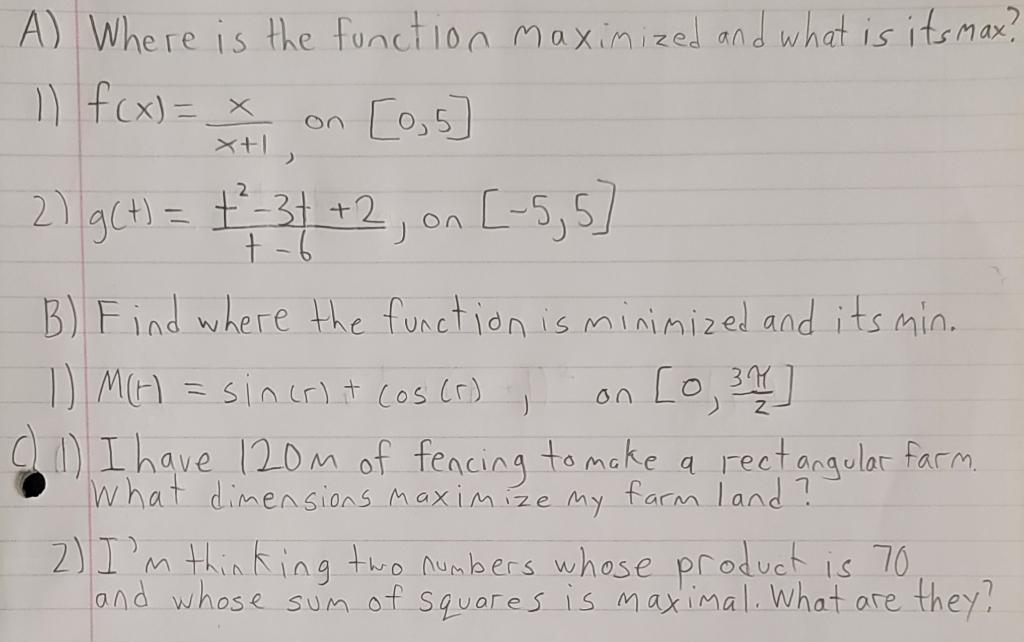 A) Where is the function maximized and what is its max?
1) f(x) = x/(x+1), on [0,5]
2) g(t) = (t²-3t+2)/(t-6), on [-5,5]
B) Find where the function is minimized and its min.
1) M(r) = sin(r) + cos(r), on [0, 3π/2]
C) 1) I have 120m of fencing to make a rectangular farm.
What dimensions maximize my farm land?
2) I'm thinking two numbers whose product is 70
and whose sum of squares is maximal. What are they?